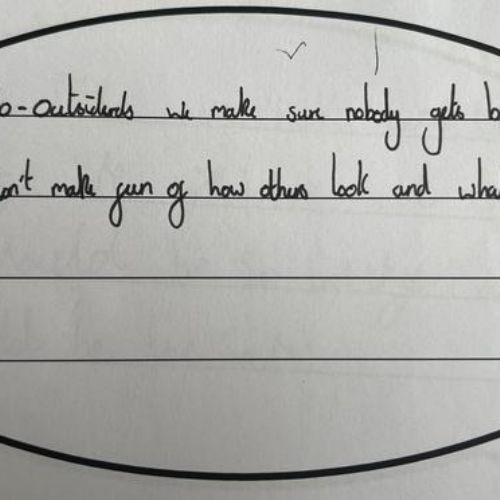 o-outsiders we make sure nobody gets b
on't make fun of how others look and wha